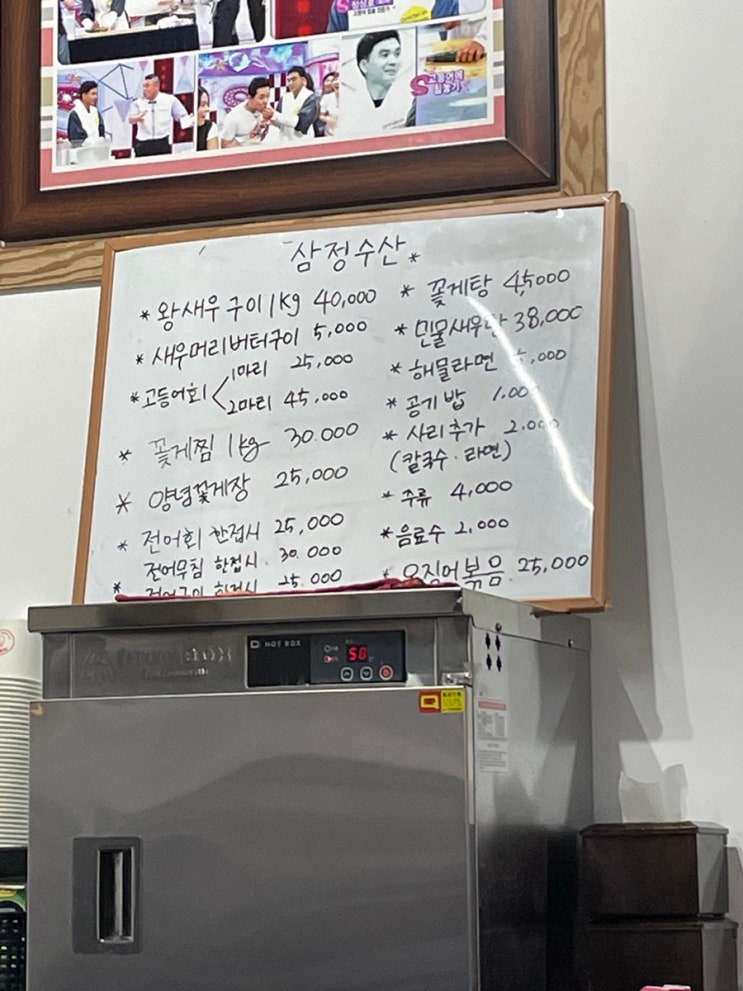 고등어에
삼정수산
* 왕새우 구이 1kg 40,000
* 새우머리버터구이 5,000
* 고등어회 1마리 25,000
2마리 45,000
* 꽃게찜 1kg 30.000
* 양념꽃게장 25,000
* 전어회 한접시 25,000
전어무침 한접시. 30.000
* 전어구이 한접시 25.000
* 꽃게탕 45,000
* 민물새우탕 38,000
* 해물라면 ,000
* 공기밥 1.000
* 사리추가 2.000
(칼국수. 라면)
* 주류 4,000
* 음료수 2,000
* 오징어볶음. 25,000
HOT BOX
50